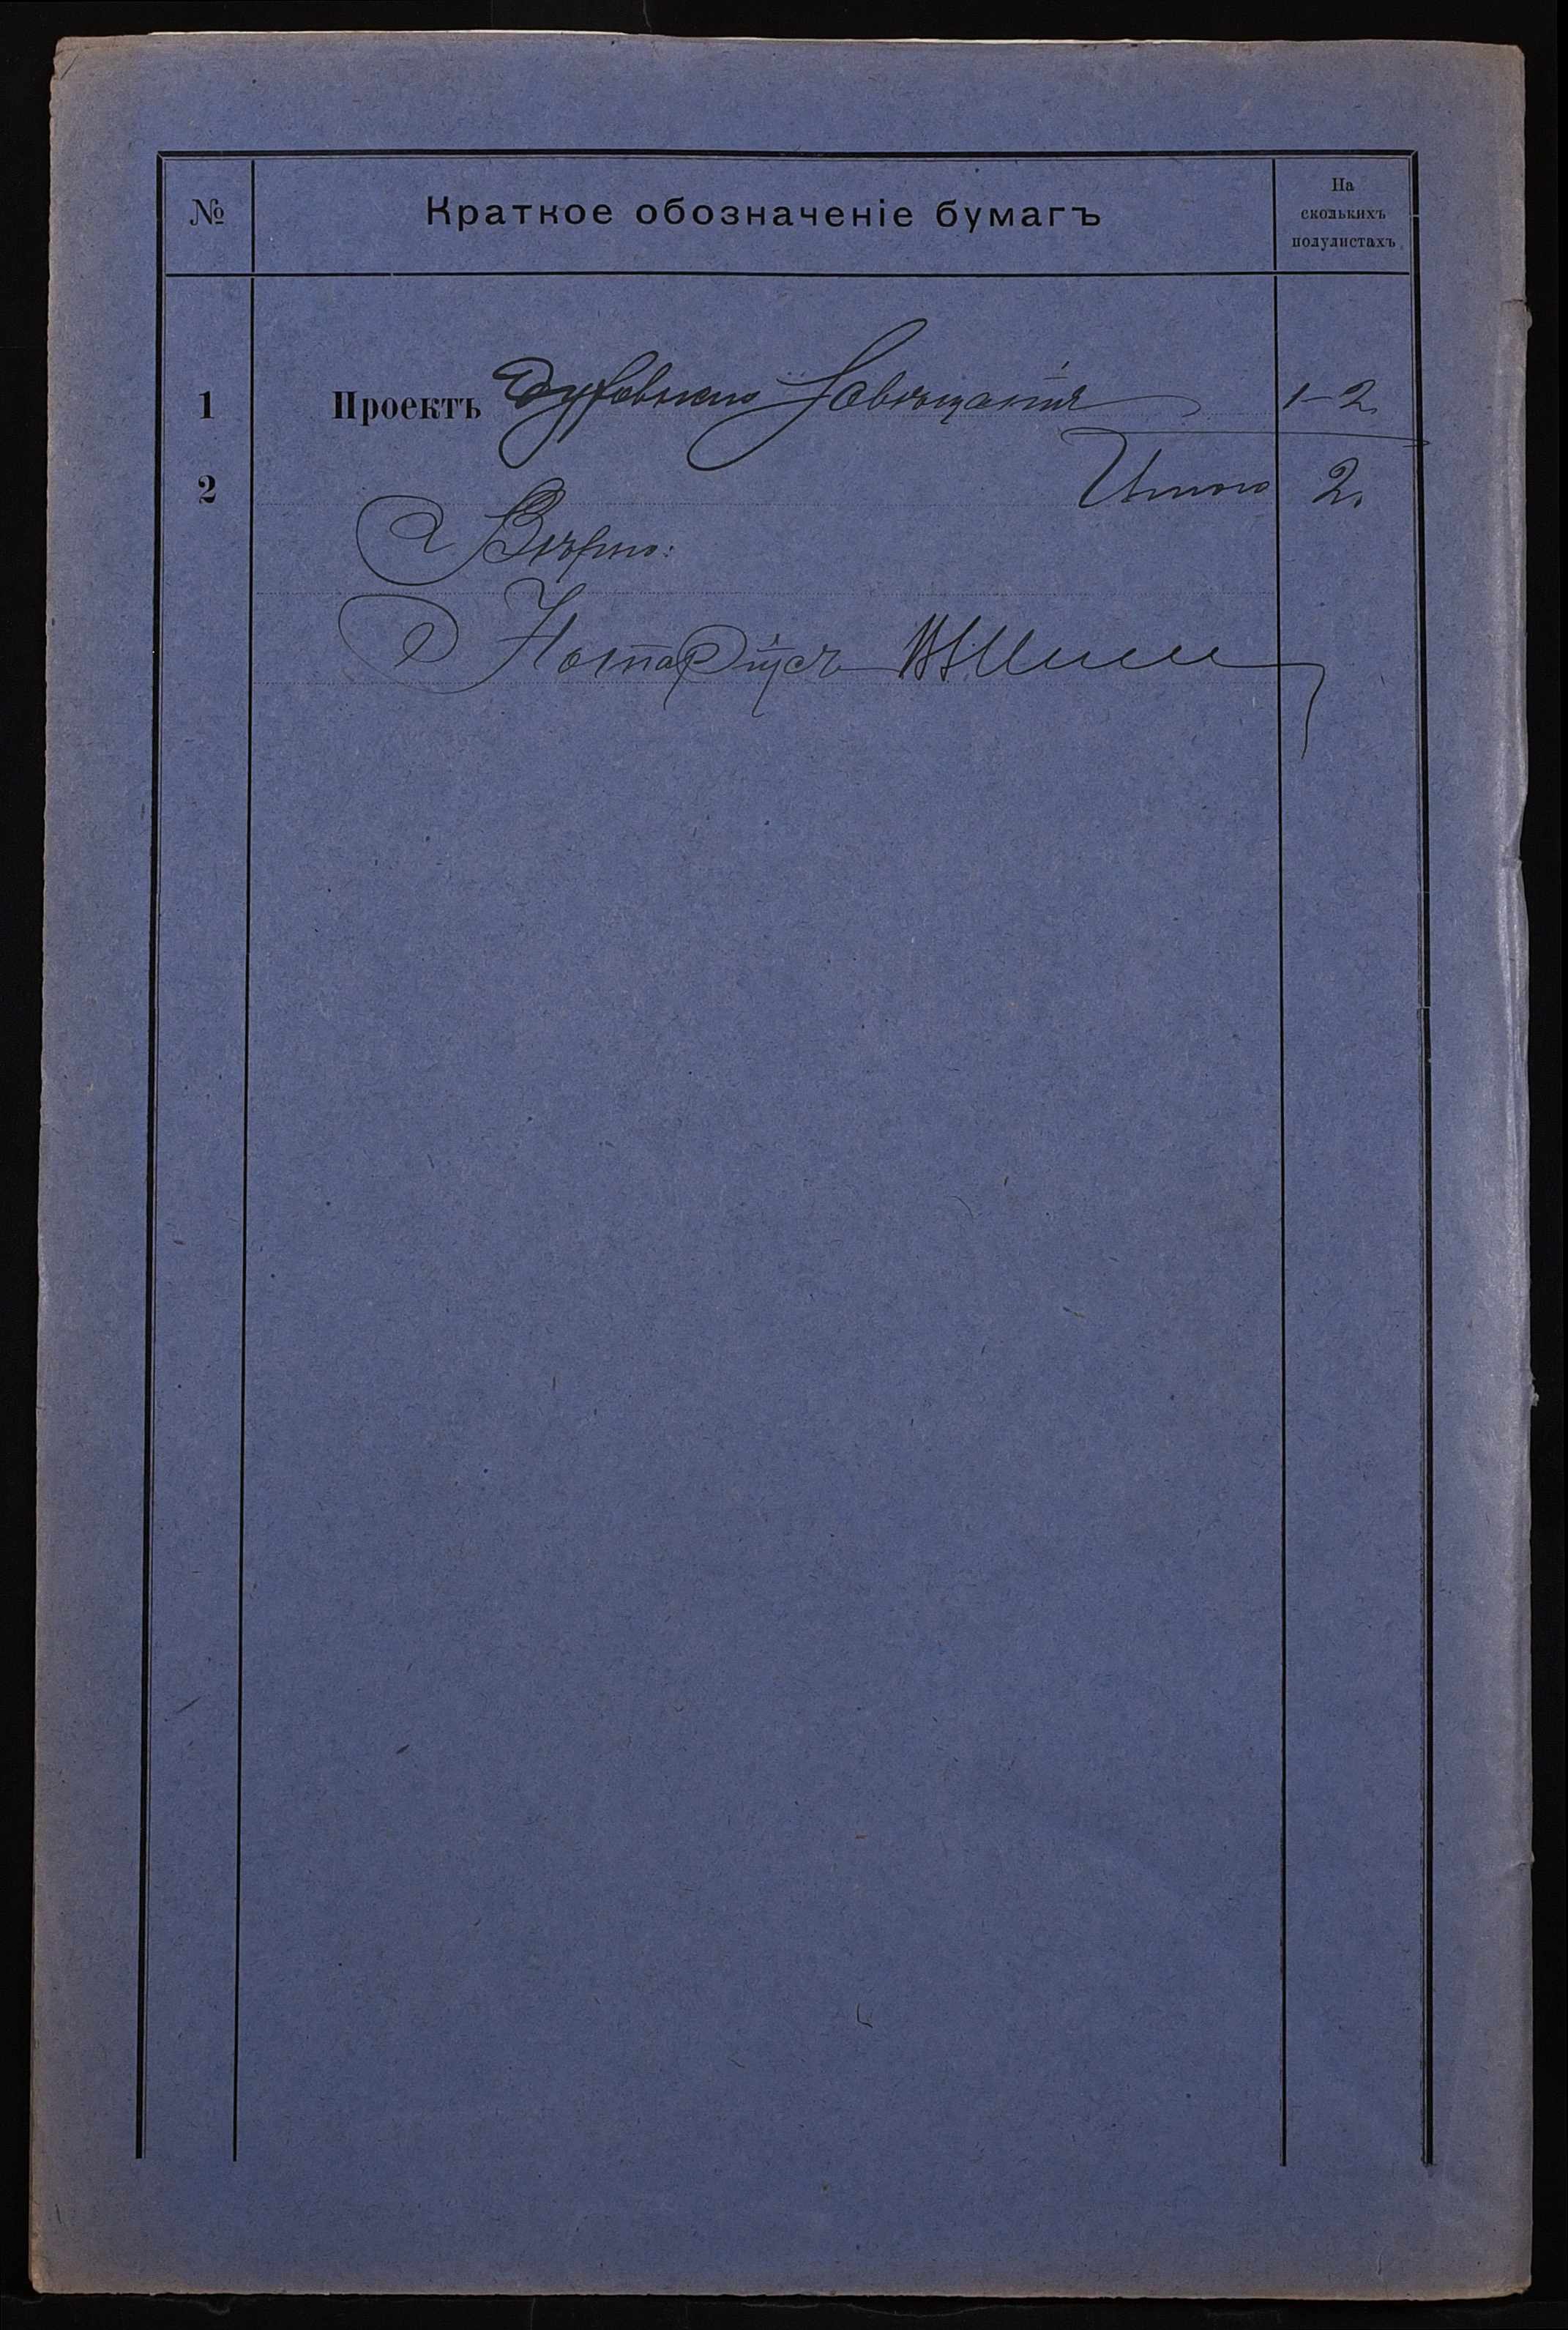 №
Краткое обозначеніе бумагъ
На
сколькихъ
полулистахъ.
1 Проектъ духовнаго завѣщанія 1-2
2 Итого 2.
Вѣрно:
Нотаріусъ